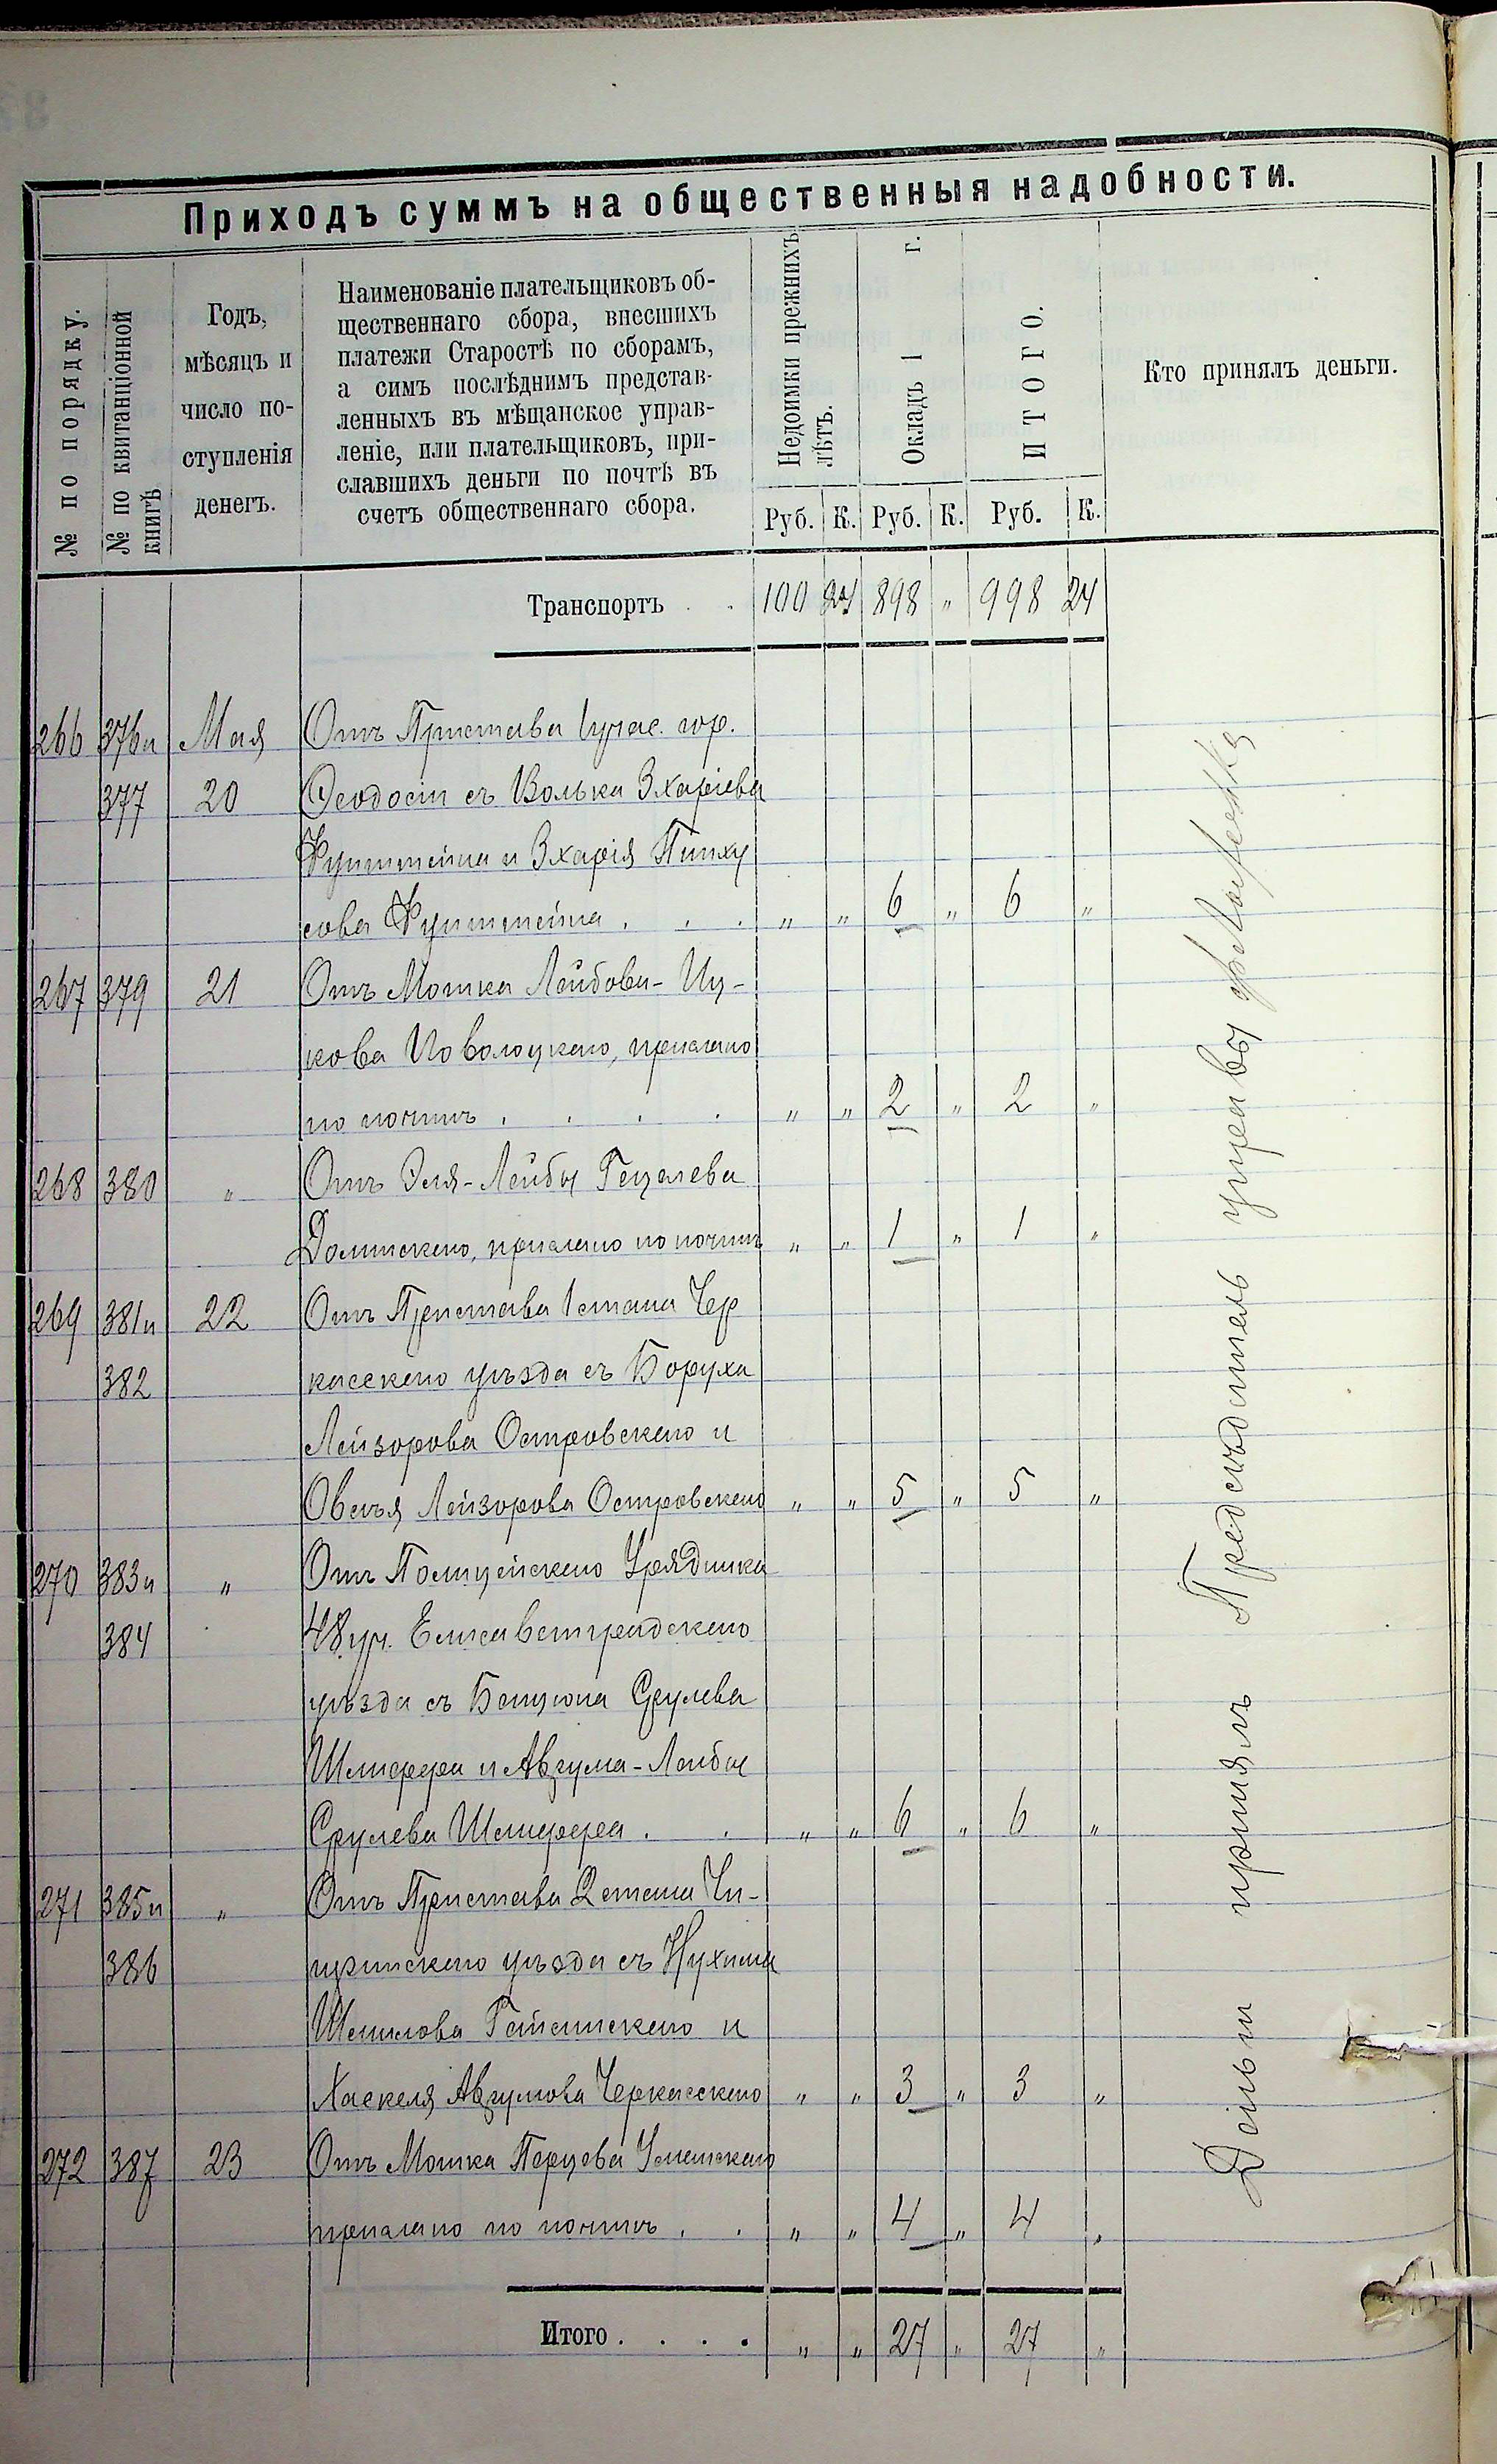 Приходъ суммъ на общественныя надобности.
№ по порядку.
№ по квитанціонной
книгѣ
Годъ,
мѣсяцъ и
число по-
ступленія
денегъ.
Наименованіе плательщиковъ об-
щественнаго сбора, внесшихъ
платежи Старостѣ по сборамъ,
а симъ послѣднимъ представ-
ленныхъ въ мѣщанское управ-
леніе, или плательщиковъ, при-
славшихъ деньги по почтѣ въ
счетъ общественнаго сбора.
Недоимки прежнихъ
лѣтъ.
Окладъ 1 г.
ИТОГО.
Кто принялъ деньги.
Руб. К. Руб. К. Руб. К.
Транспортъ . . 100 24 898 " 998 24
266 376 и Мая Отъ Пристава 1 учас. гор.
377 20 Ѳеодосіи съ Волька Зхаріева
и Зхарія Пинху
сова . . . " " 6 " 6 "
267 379 21 Отъ Мошка Лейбова-Иц-
кова Поволоцкаго, прислано
по почтѣ . . . . " " 2 " 2 "
268 380 " Отъ Эля-Лейбы Гецелева
Долинскаго, прислано по почтѣ " " 1 " 1 "
269 381 и 22 Отъ Пристава 1 стана Чер
382 касскаго уѣзда съ Боруха
Лейзорова Островскаго и
Овсѣя Лейзорова Островскаго " " 5 " 5 "
270 383 и " Отъ Полицейскаго Урядника
384 48 уч. Елисаветградскаго
уѣзда съ Бенціона Срулева
Шлифера и Аврума-Лейбы
Срулева Шлифера . . " " 6 " 6 "
271 385 и " Отъ Пристава 2 стана Чи-
386 гиринскаго уѣзда съ Нухима
Шмилова и
Хаскеля Аврумова Черкасскаго " " 3 " 3 "
272 387 23 Отъ Мошка Перцова Уманскаго
прислано по почтѣ . . " " 4 " 4 "
Итого . . . . " " 27 " 27 "
Деньги принялъ Предсѣдатель управы